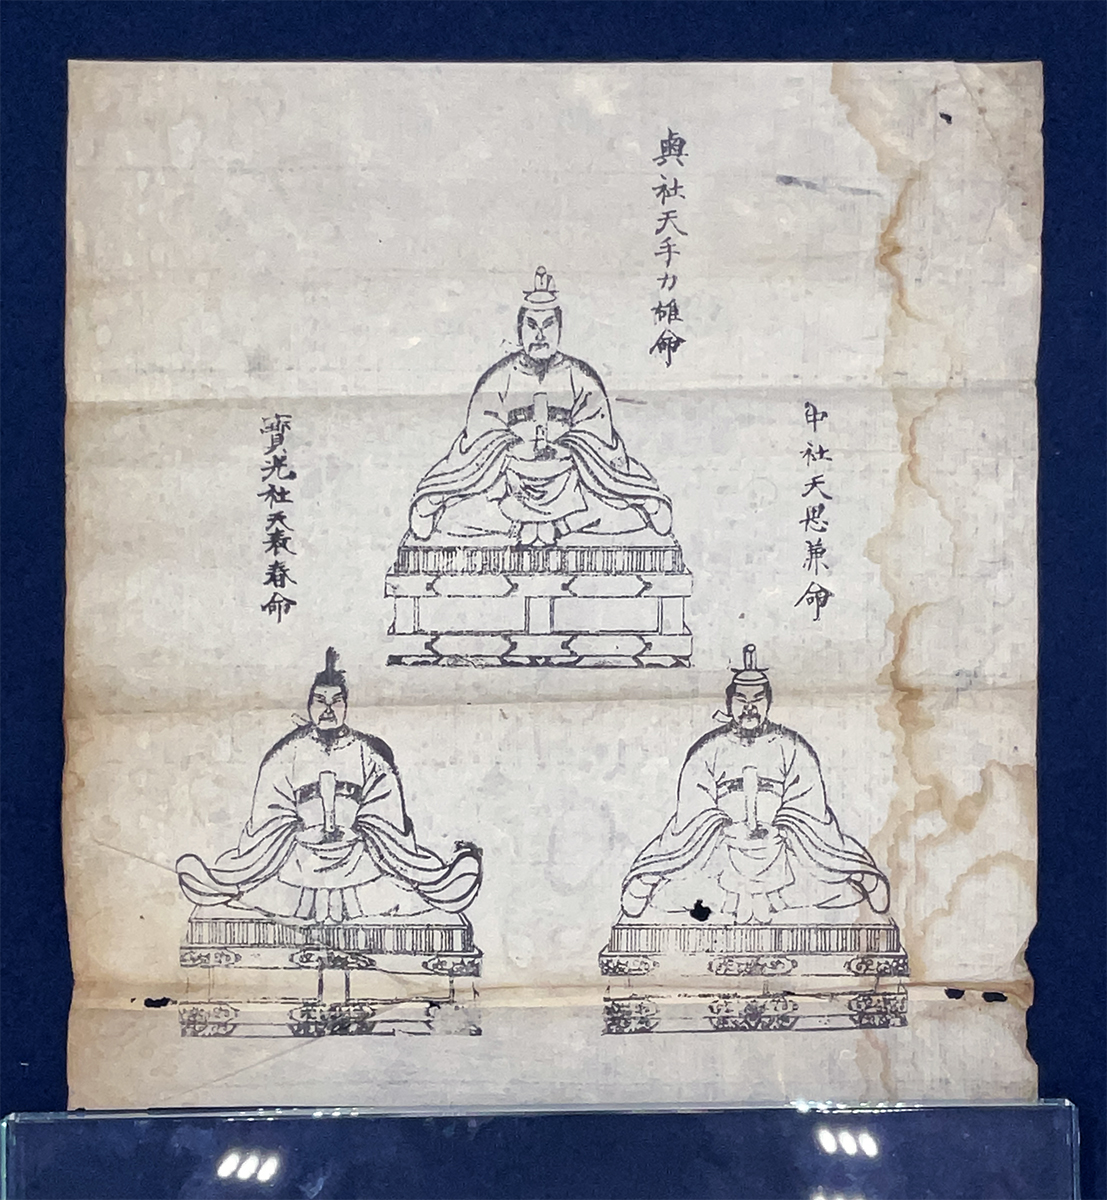 奥社天手力雄命
中社天思兼命
寳光社天表春命